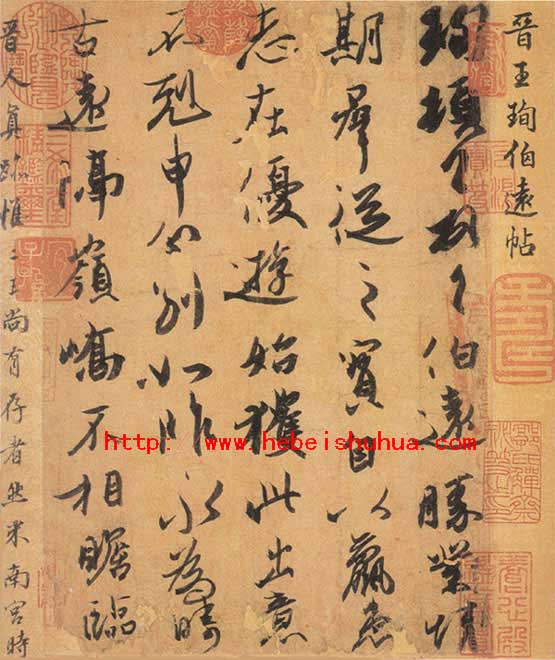 晉王珣伯遠帖
珣頓首頓首伯遠勝業情
期羣從之寶自以羸患
志在優遊始獲此出意
不剋申分別如昨永為疇
古遠隔嶺嶠不相瞻臨
晉人真跡惟二王尚有存者然米南宮時
http: www.hebeishuhua.com